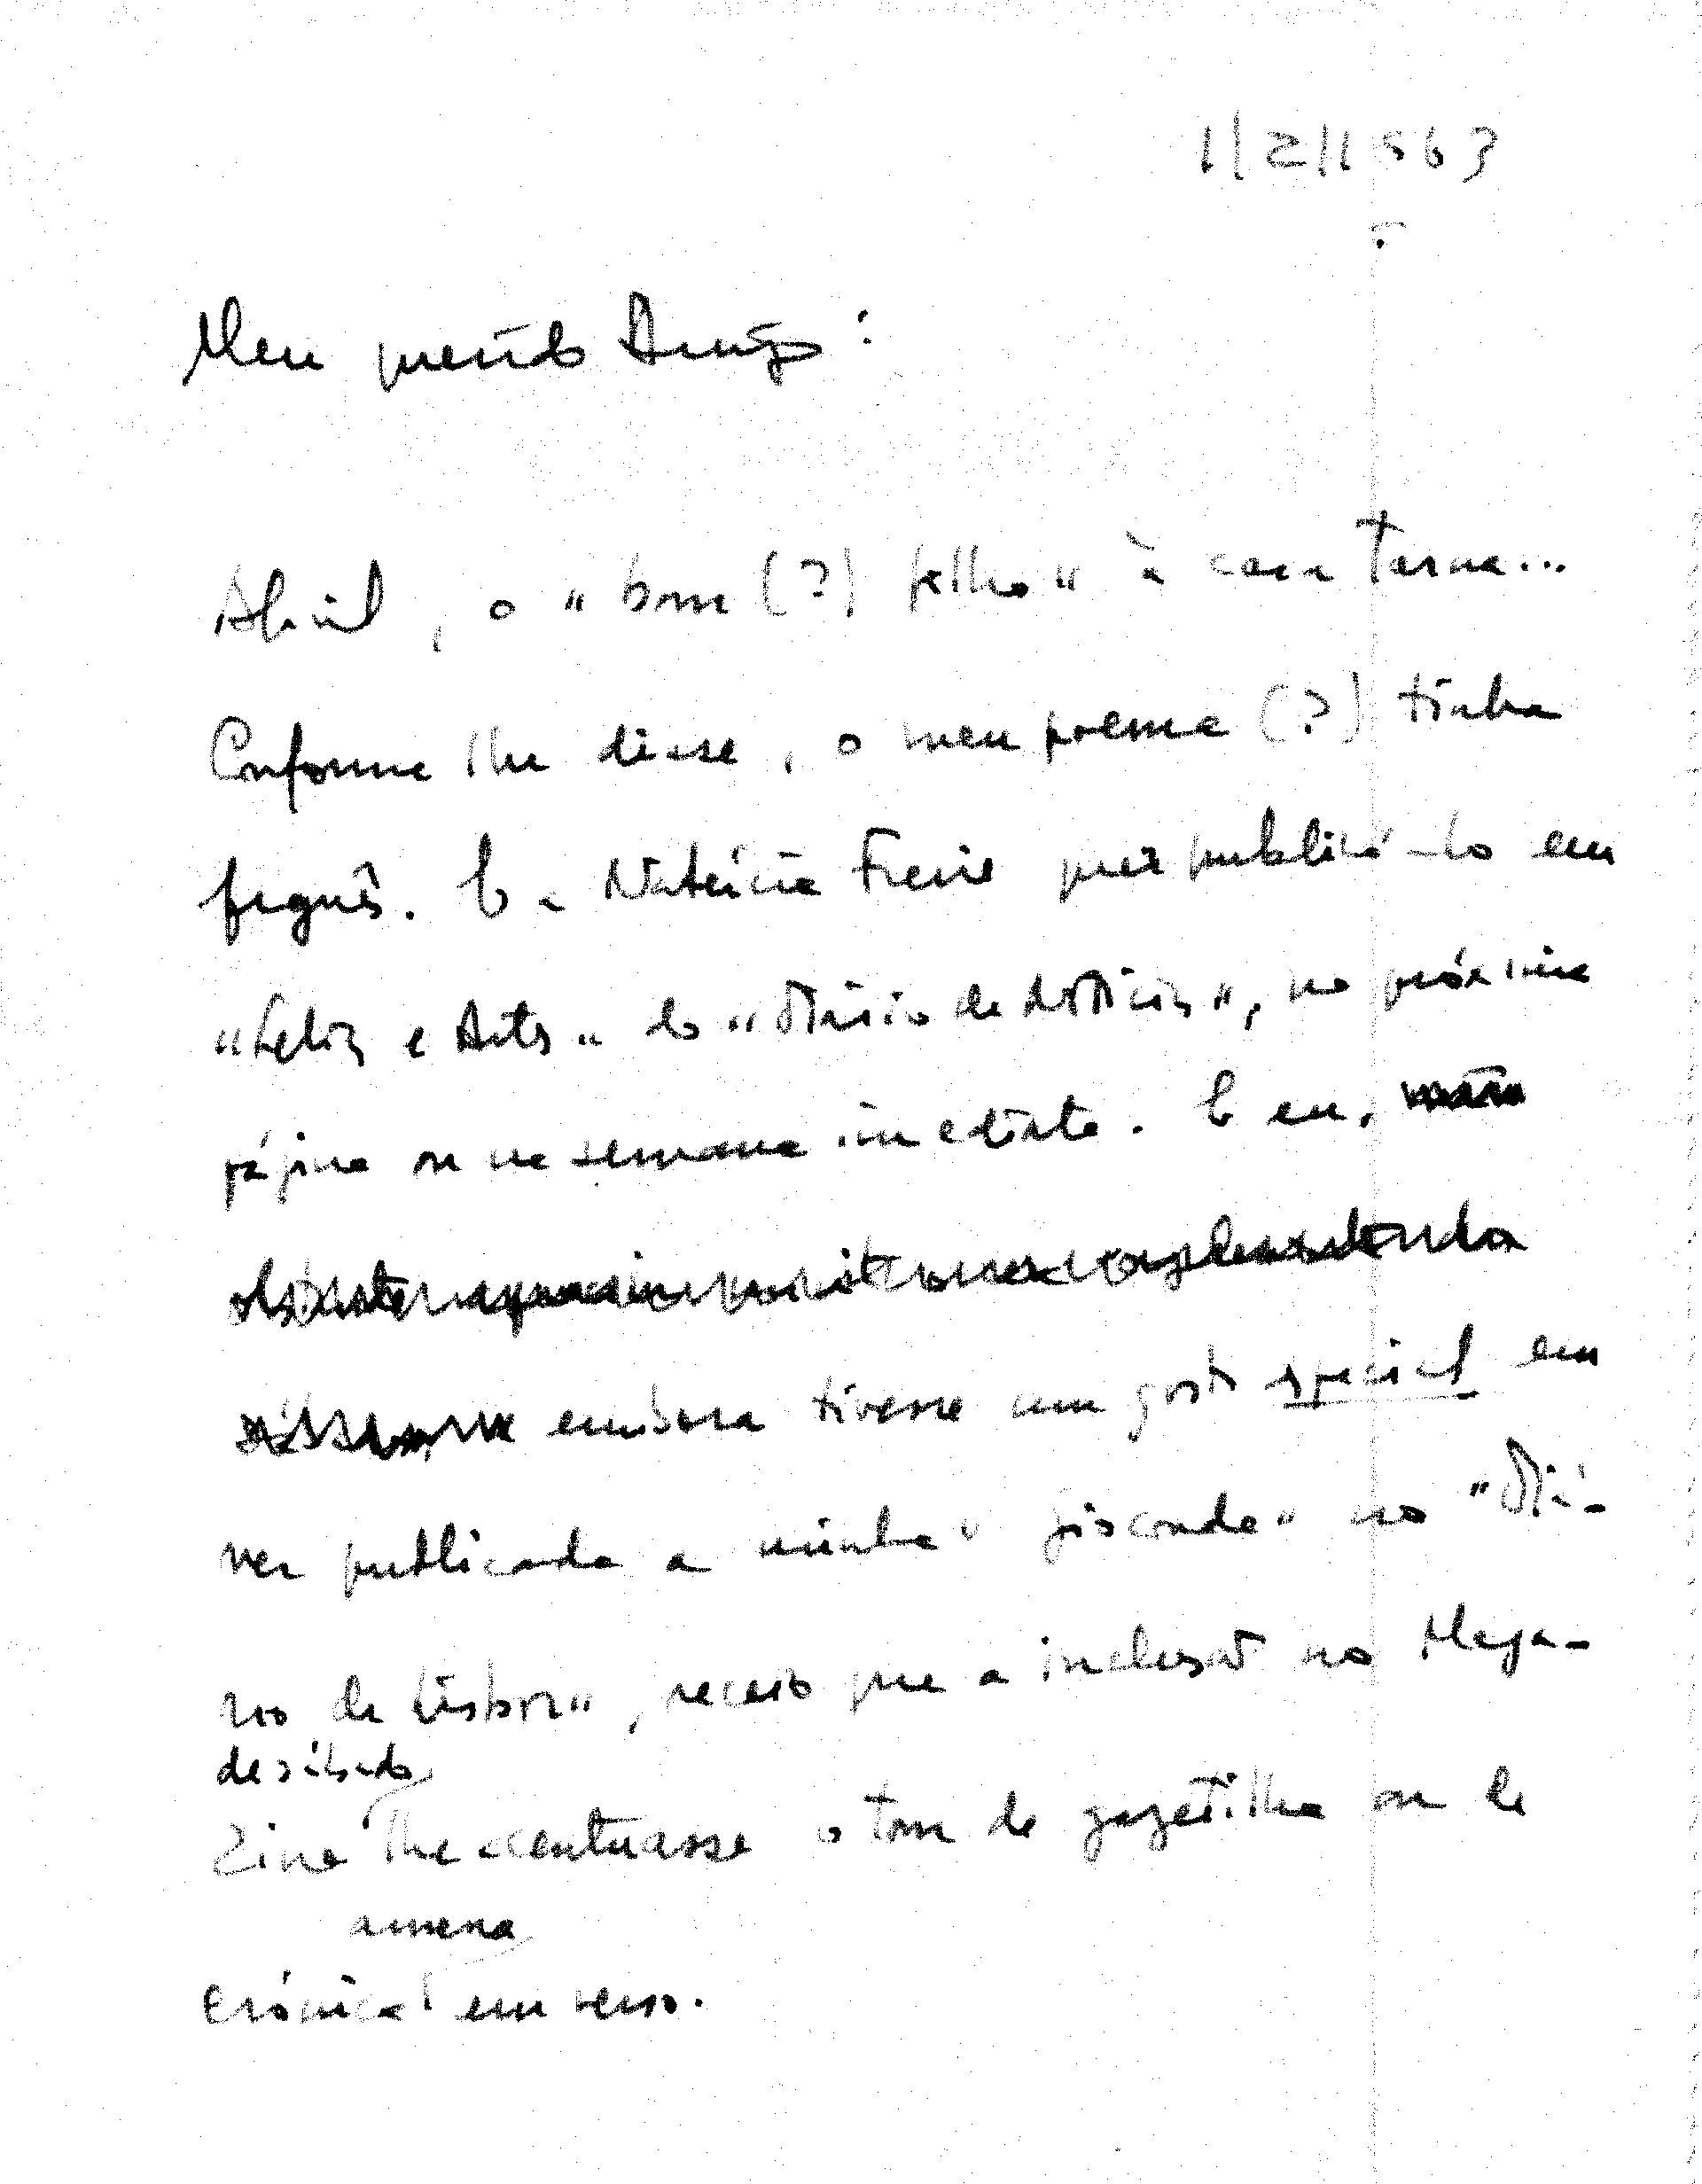 1/2/1963
Meu querido Amigo:
Afinal, o "bom (?) filho" à casa torna...
Conforme lhe disse, o meu poema (?) tinha
freguês. E a Natércia Freire quer publicá-lo em
"Letras e Artes" do "Diário de Notícias", na próxima
página ou na semana imediata. E eu,
embora tivesse um gosto especial em
ver publicada a minha "gioconda" no "Diá-
rio de Lisboa", receio que a inclusão no Maga-
de sábado
zine lhe acentuasse o tom de gazetilha ou de
amena
crónica em verso.